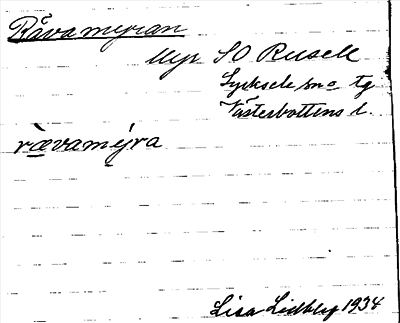 Rävamyran
Myr SO Rusele
Lycksele sn o tg
Västerbottens l.
rævamýra
Lisa Lidberg 1934